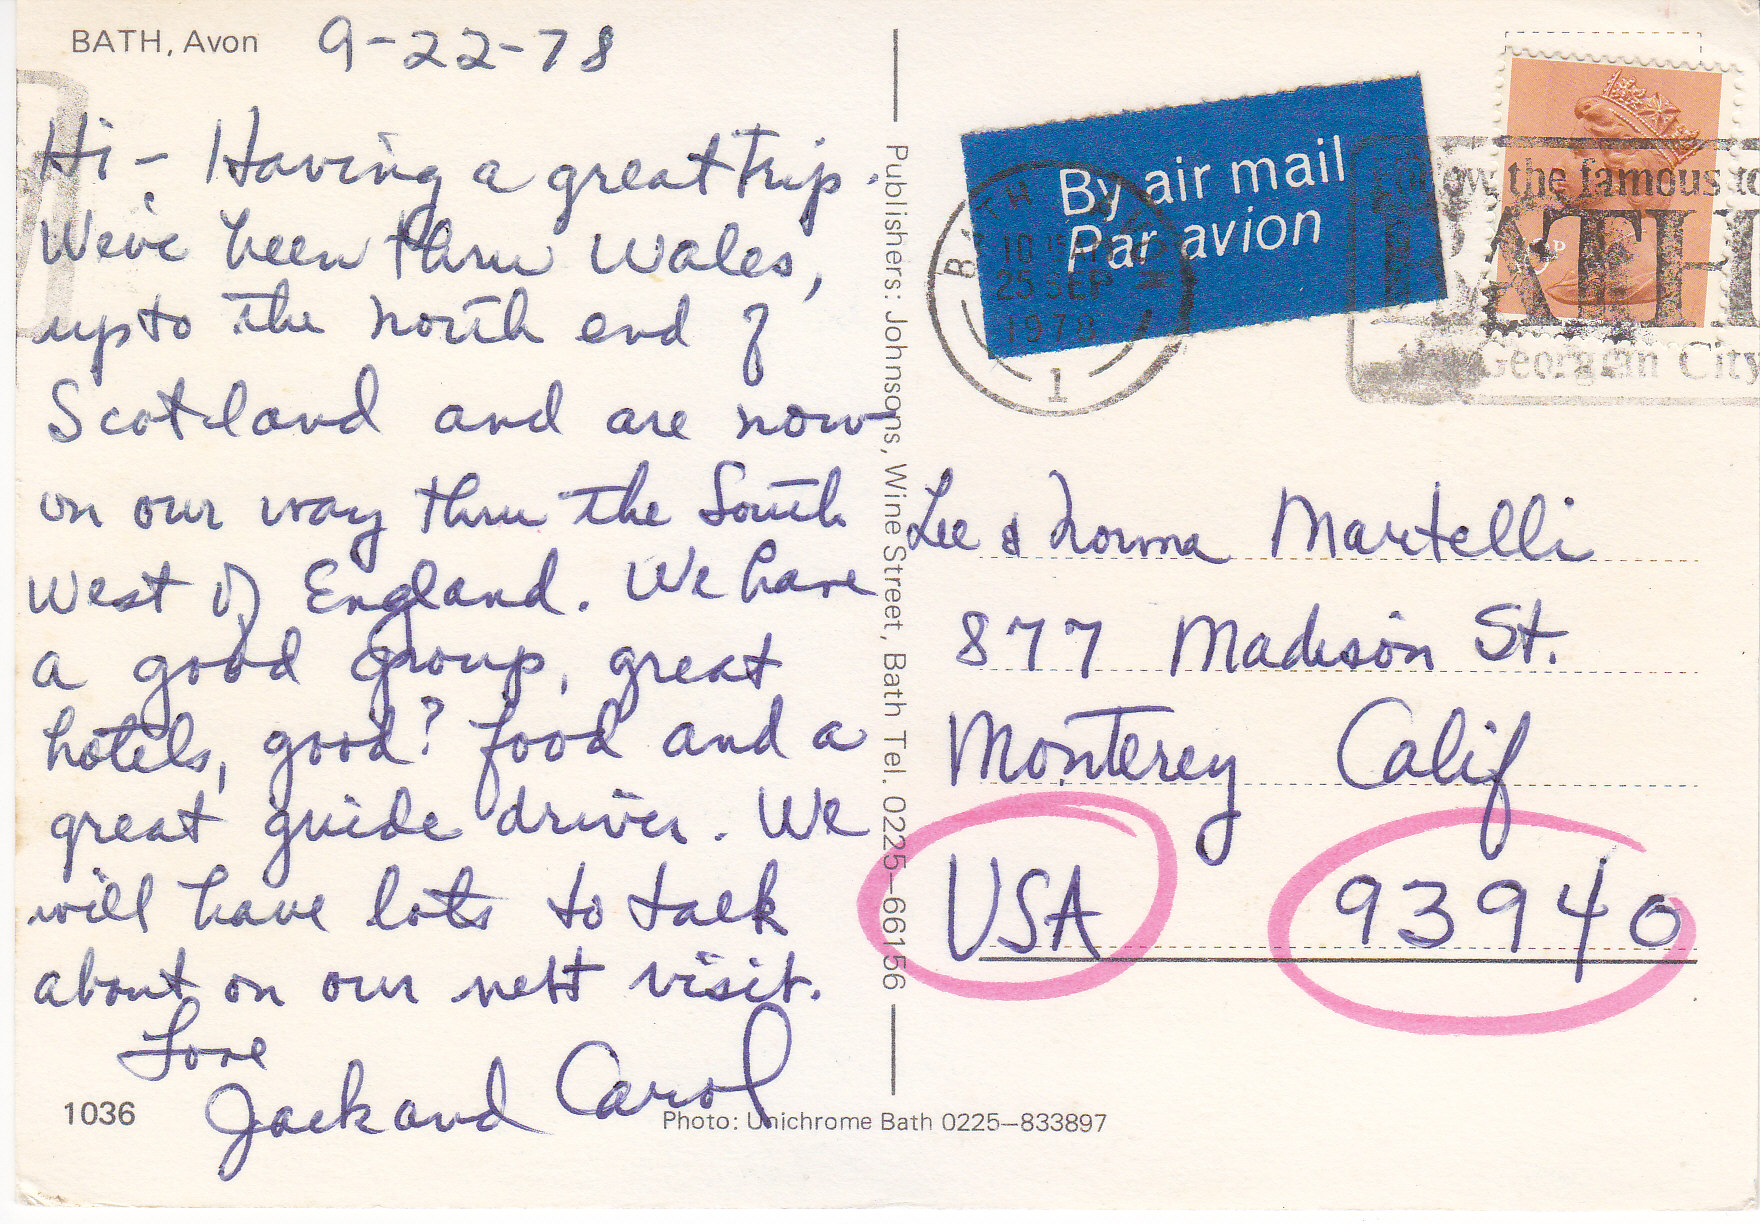 BATH, Avon
9-22-78
Hi - Having a great trip.
We've been thru Wales,
up to the north end of
Scotland and are now
on our way thru the South
West of England. We have
a good group, great
hotels, good? food and a
great guide driver. We
will have lots to talk
about on our next visit.
Love
Jack and Carol
1036
Photo: Unichrome Bath 0225-833897
Publishers: Johnsons, Wine Street, Bath Tel. 0225-66156
By air mail
Par avion
BATH
25 SEP
1978
1
Follow the famous to
BATH
Georgian City
Lee & Norma Martelli
877 Madison St.
Monterey Calif
USA 93940